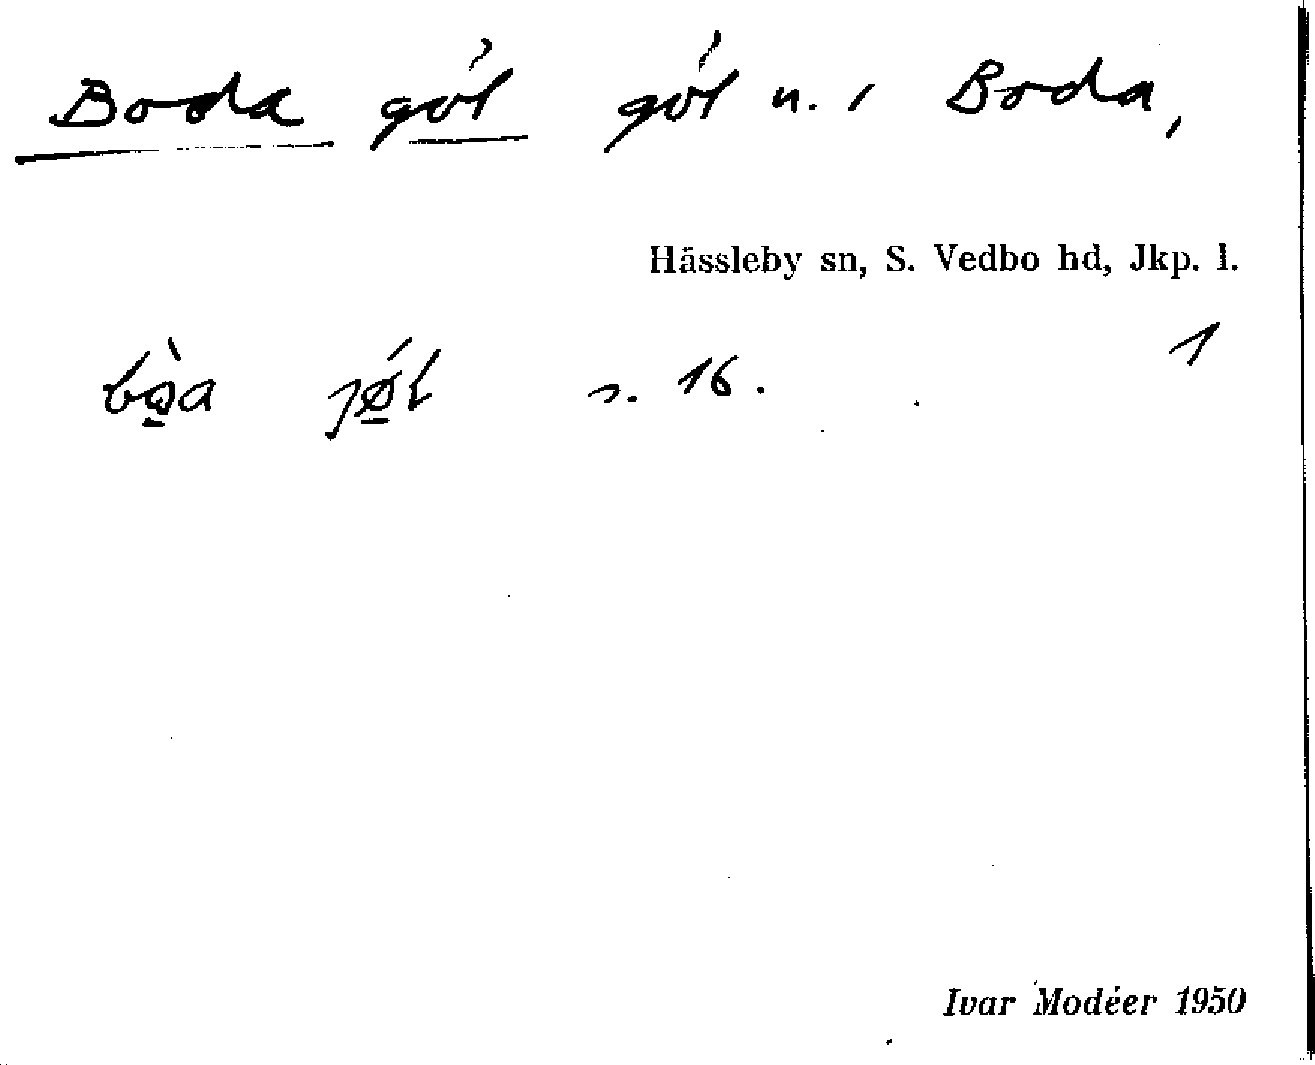 Boda göl göl n. i Boda,
Hässleby sn, S. Vedbo hd, Jkp. l.
1
s. 16.
Ivar Modéer 1950